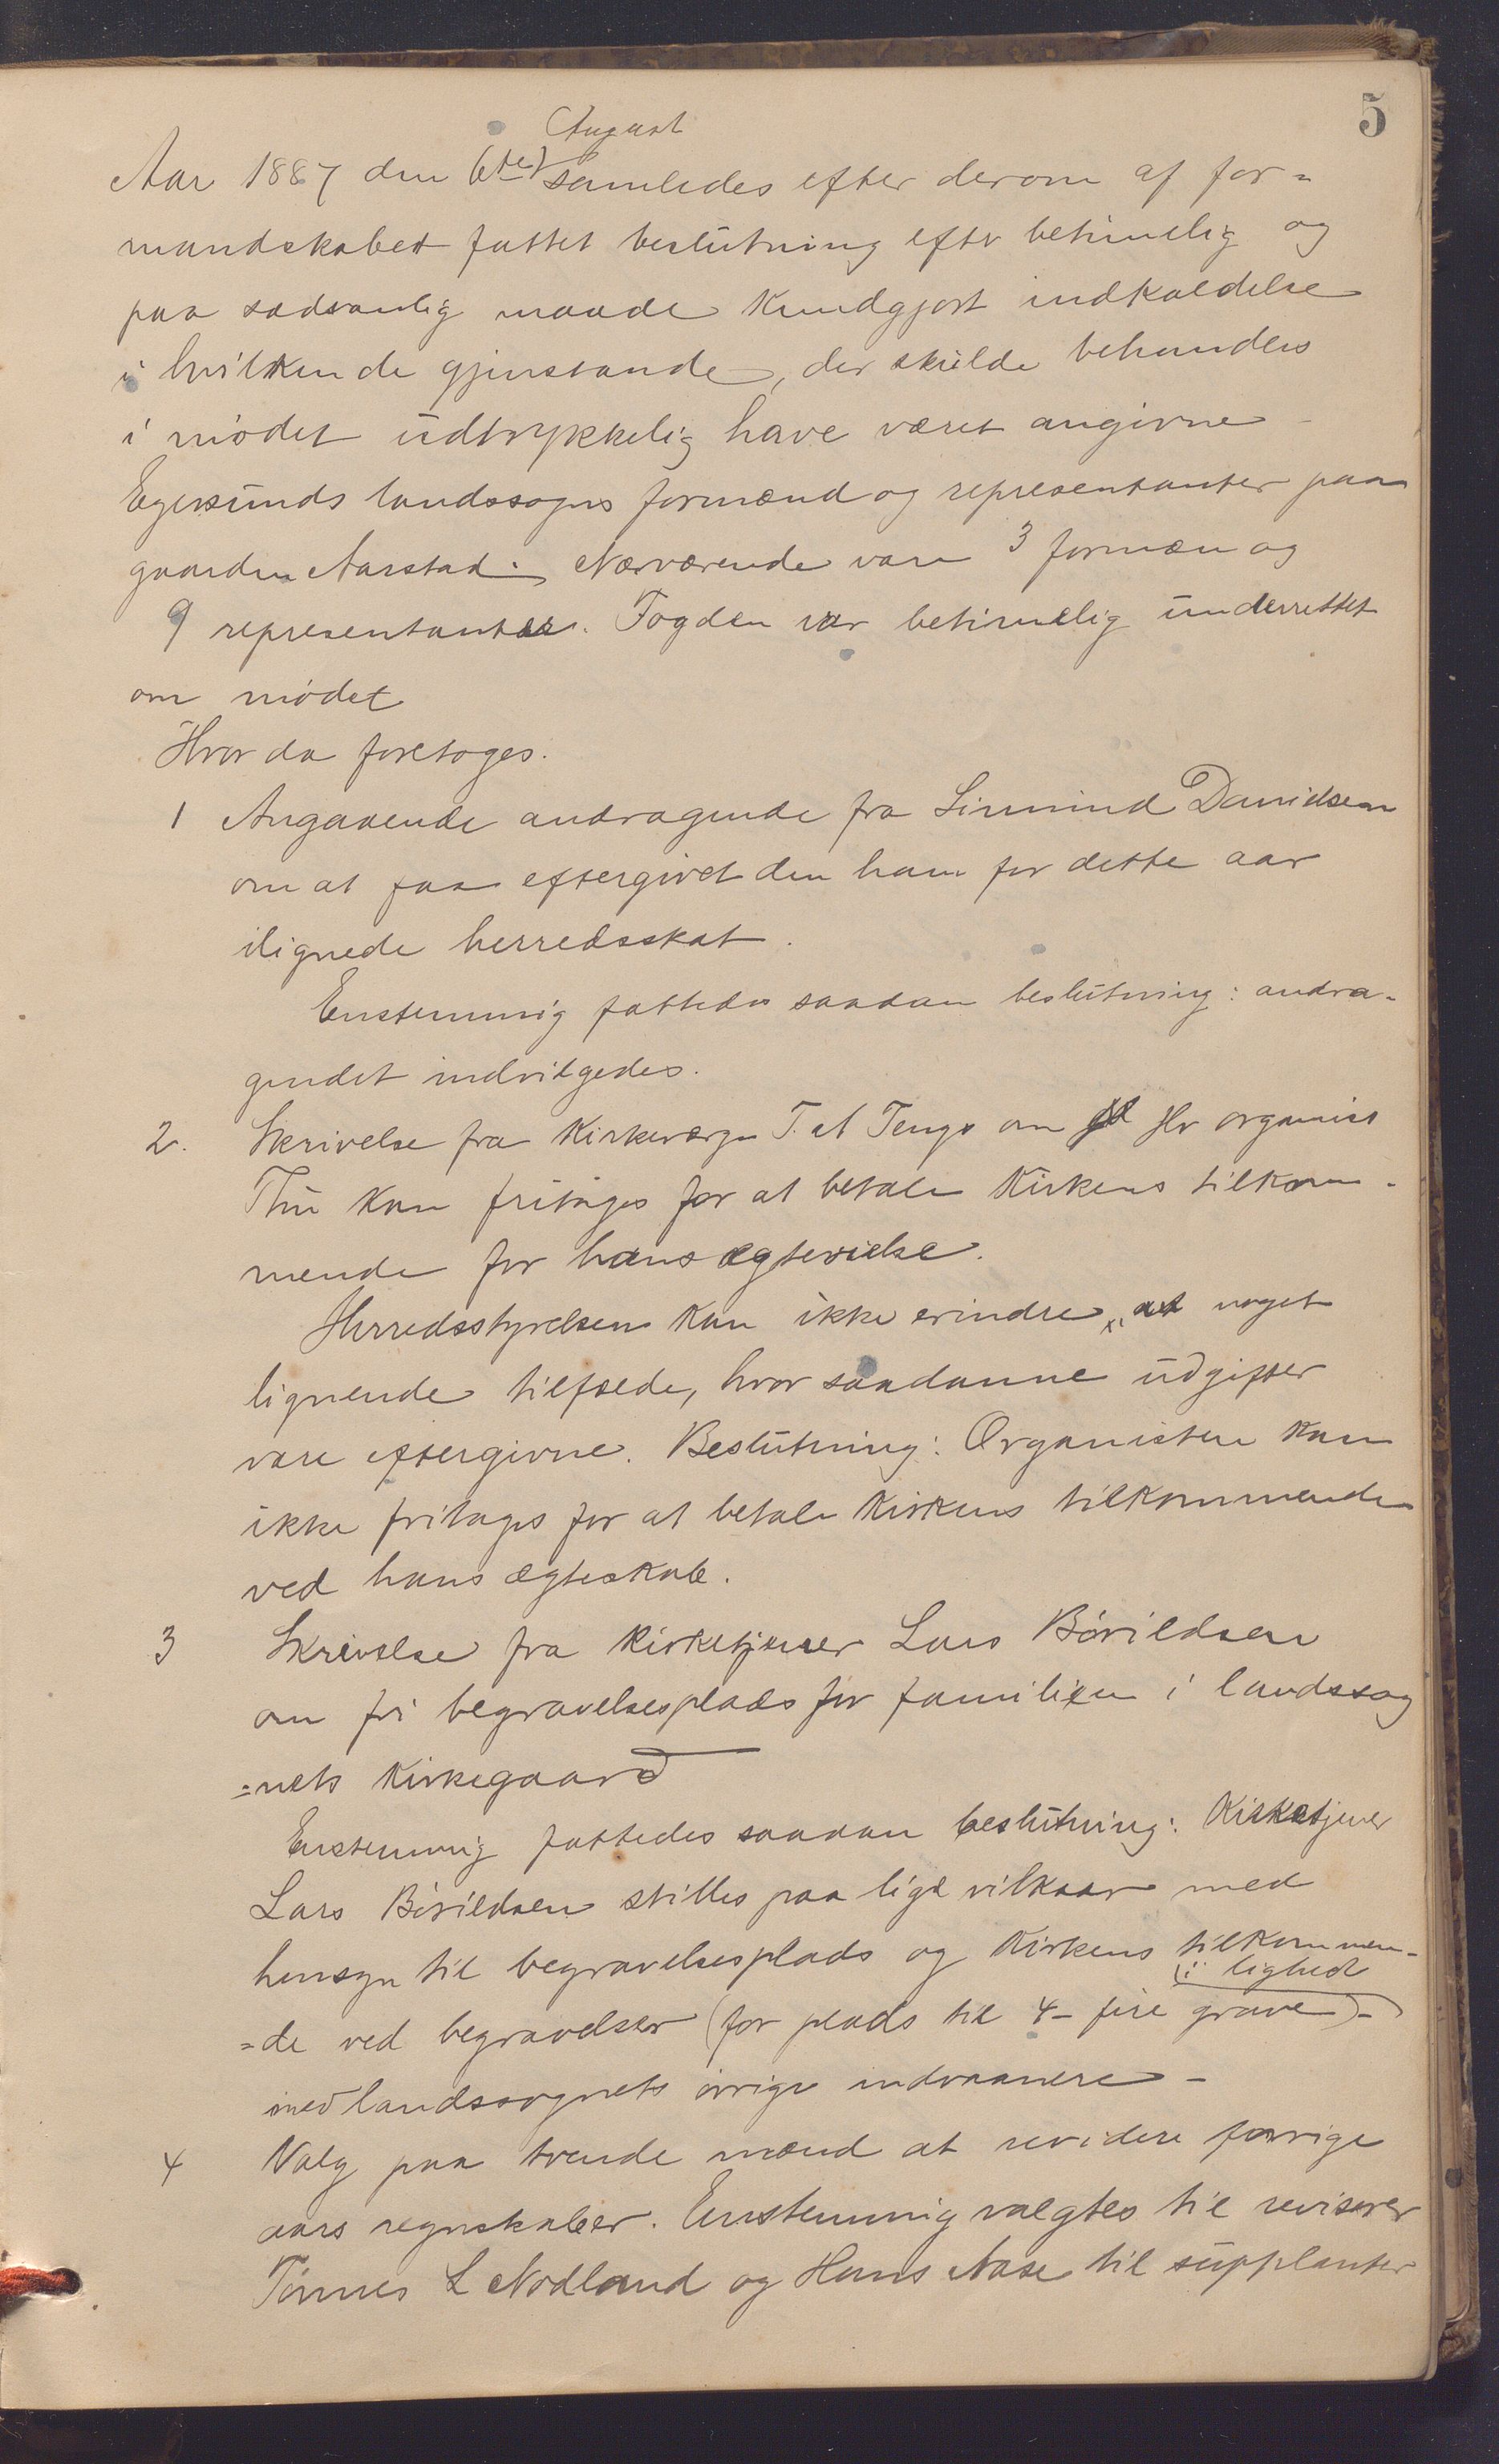 5
August
Aar 1887 den 6te samledes efter derom af for=
mandskabet fattet beslutning efter betimelig og
paa sædvanlig maade kundgjort indkaldelse
i hvilken de gjenstande, der skulde behandles
i mødet udtrykkelig have været angivne
Egersunds landssogns formænd og representanter paa
gaarden Aarstad. Nærværende vare 3 formæn og
9 representanter. Fogden var betimelig underrettet
om mødet
Hvor da foretoges.
1 Angaaende andragende fra Simund Davidsen
om at faa eftergivet den ham for dette aar
ilignede herredsskat.
Enstemmig fattedes saadan beslutning: andra-
gendet indvilgedes.
2. Skrivelse fra Kirkeværge T. at Tengs om Hr organist
Thu kan fritages for at betale Kirkens tilkom-
mende for hans ægtevielse.
Herredsstyrelsen kan ikke erindre at noget
lignende tilfælde, hvor saadanne udgifter
vare eftergivne. Beslutning: Organisten kan
ikke fritages for at betale Kirkens tilkommende
ved hans ægteskab.
3 Skrivelse fra Kirketjener Lars Bøvildsen
om fri begravelsesplads for familien i landssog
=nets Kirkegaard
Enstemmig fattedes saadan beslutning: Kirketjener
Lars Bøvildsen stilles paa lige vilkaar med
hensyn til begravelsesplads og Kirkens tilkommen-
i lighed
=de ved begravelser (for plads til 4 - fire grave) -
med landssognets øvrige indvaanere -
4 Valg paa tvende mænd at revidere forrige
aars regnskaber. Enstemmig valgtes til revisorer
Tønnes L Nodland og Hans Aase til supplanter